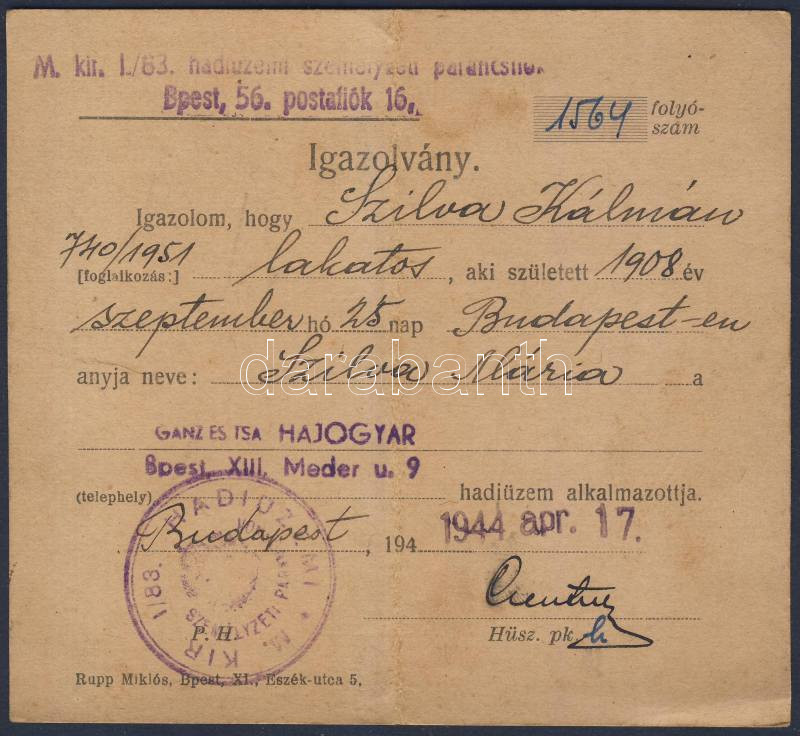 M. kir. I./83. hadiüzemi személyzeti parancsnok
Bpest, 56. postafiók 16.
1564 folyó-
szám
Igazolvány.
Igazolom, hogy Szilva Kálmán
740/1951
[foglalkozás:] lakatos, aki született 1908 év
szeptember hó 25 nap Budapest-en
anyja neve: Szilva Mária a
GANZ ÉS TSA HAJOGYAR
Bpest, XIII, Meder u. 9
(telephely) hadiüzem alkalmazottja.
Budapest, 194 1944 apr. 17.
P. H. Hüsz. pk. h
M. KIR. I/83. HADIÜZEMI
SZEMÉLYZETI PAR
Rupp Miklós, Bpest, XI., Eszék-utca 5.
darabanth